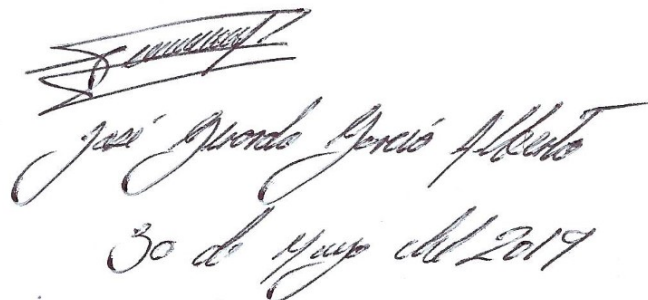 José Gerardo García Alberto
30 de Mayo del 2019